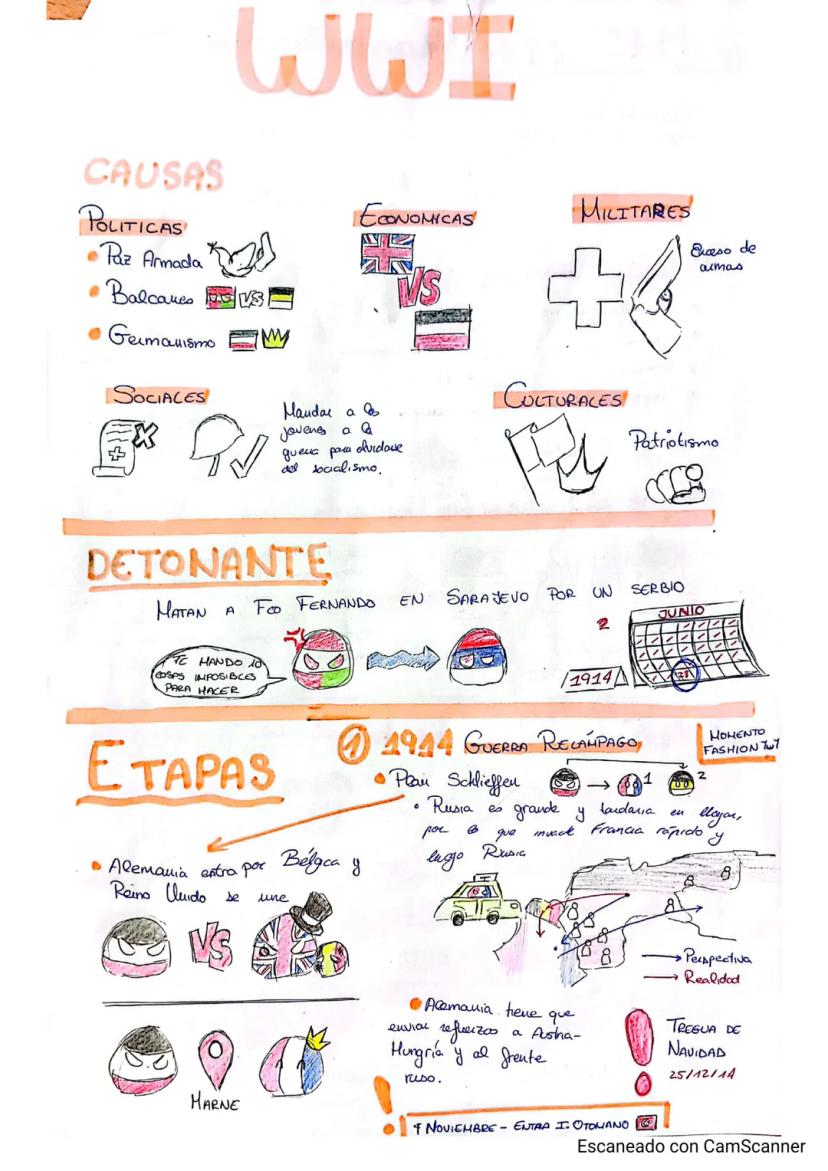 WWI
CAUSAS
POLITICAS
Paz Armada
Balcanes VS
Germanismo
ECONOMICAS
VS
MILITARES
Exceso de
armas
SOCIALES
Mandar a los
jovenes a la
guerra para olvidarse
del socialismo.
CULTURALES
Patriotismo
DETONANTE
MATAN A FCO FERNANDO EN SARAJEVO POR UN SERBIO
TE MANDO 10
COSAS IMPOSIBLES
PARA HACER
JUNIO
28
1914
ETAPAS
1 1914 GUERRA RELÁMPAGO
MOMENTO
FASHION TWT
Plan Schlieffen
1 2
Rusia es grande y tardaria en llegar,
por lo que invade Francia rápido y
luego Rusia
Alemania entra por Bélgca y
Reino Unido se une
VS
Perspectiva
Realidad
MARNE
Alemania tiene que
enviar refuerzos a Austria-
Hungría y al frente
ruso.
TREGUA DE
NAVIDAD
25/12/14
NOVIEMBRE - ENTRA I. OTOMANO
Escaneado con CamScanner